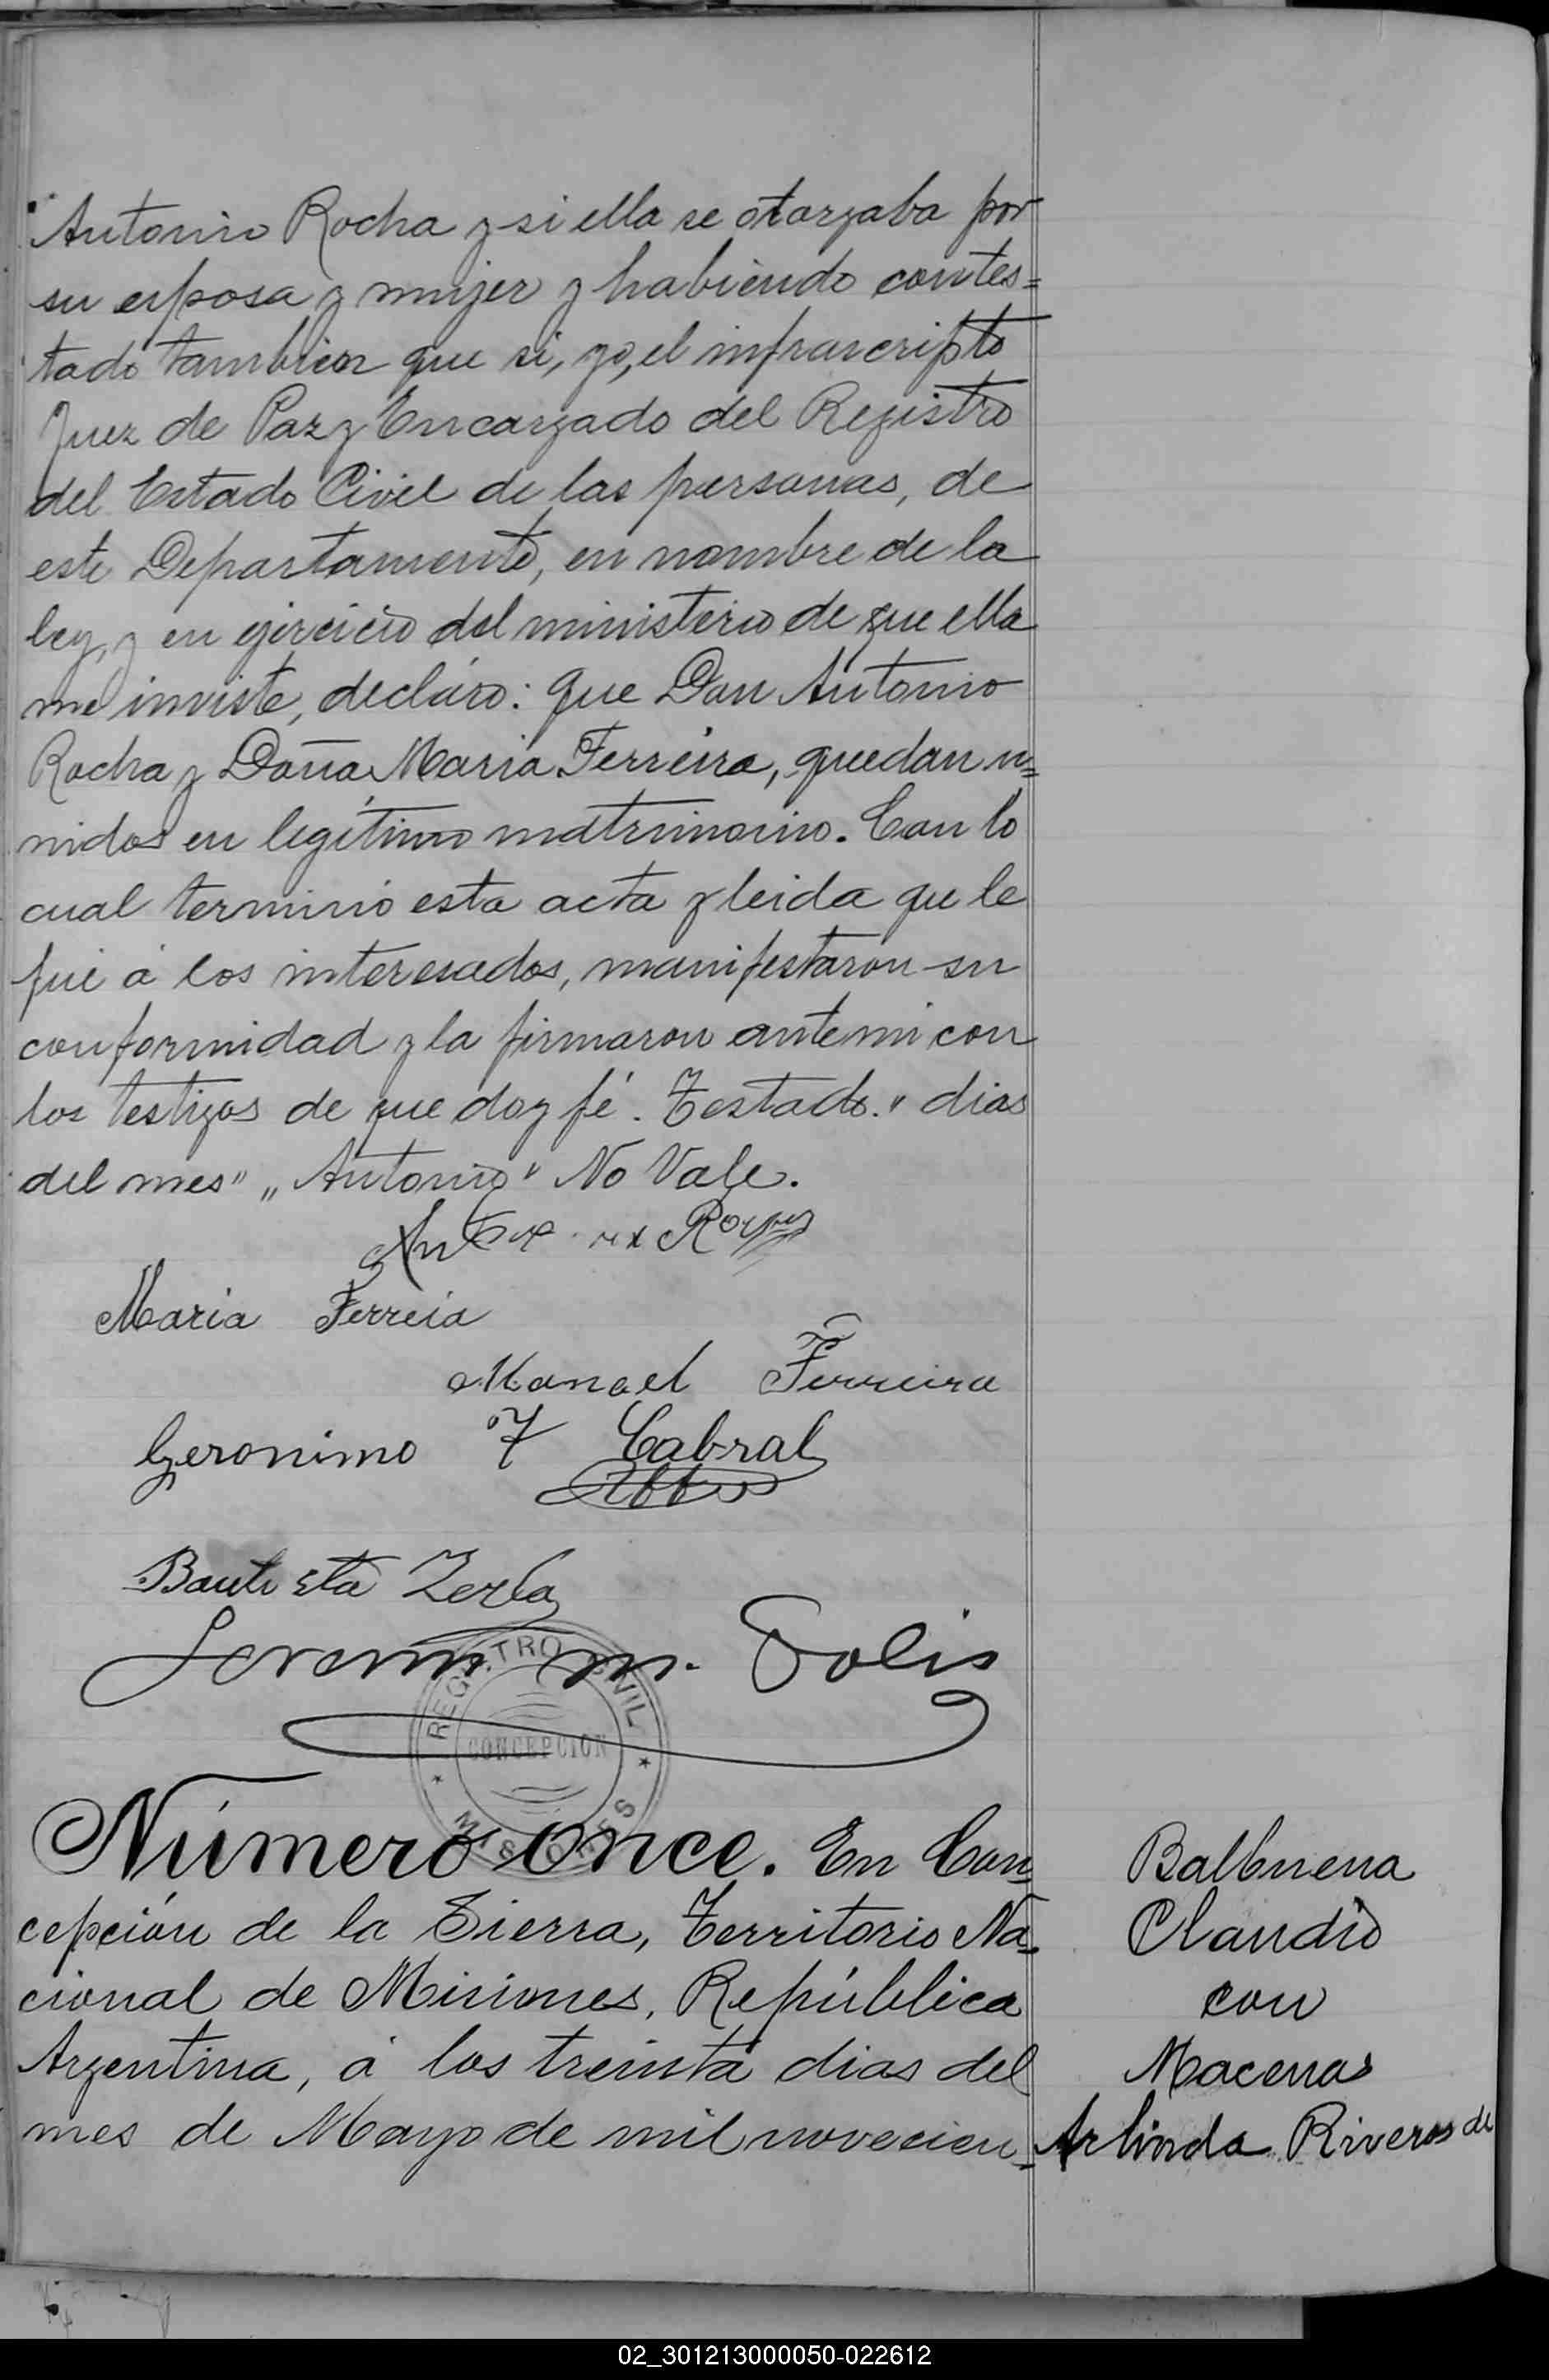 Antonio Rocha y si ella se otorgaba por
su esposa y mujer y habiendo contes=
tado tambien que si, yo, el infrascripto
Juez de Paz y Encargado del Registro
del Estado Civil de las personas, de
este Departamento, en nombre de la
ley, y en ejercicio del ministerio de que ella
me inviste, declaro: que Don Antonio
Rocha y Doña Maria Ferreira, quedan u=
nidos en legítimo matrimonio. Con lo
cual terminó esta acta y leida que le
fué á los interesados, manifestaron su
conformidad y la firmaron ante mi con
los testigos de que doy fé. Testado." dias
del mes" „Antonio" No Vale.
Maria Ferreia
Manoel Ferreira
Geronimo F Cabral
Bautista Zerla
m. Solis
REGISTRO CIVIL
CONCEPCION
MISIONES
Número once. En Con=
cepción de la Sierra, Territorio Na=
cional de Misiones, República
Argentina, á los treinta dias del
mes de Mayo de mil novecien=
Balbuena
Claudio
con
Macenas
Arlinda Riveros de
02_301213000050-022612